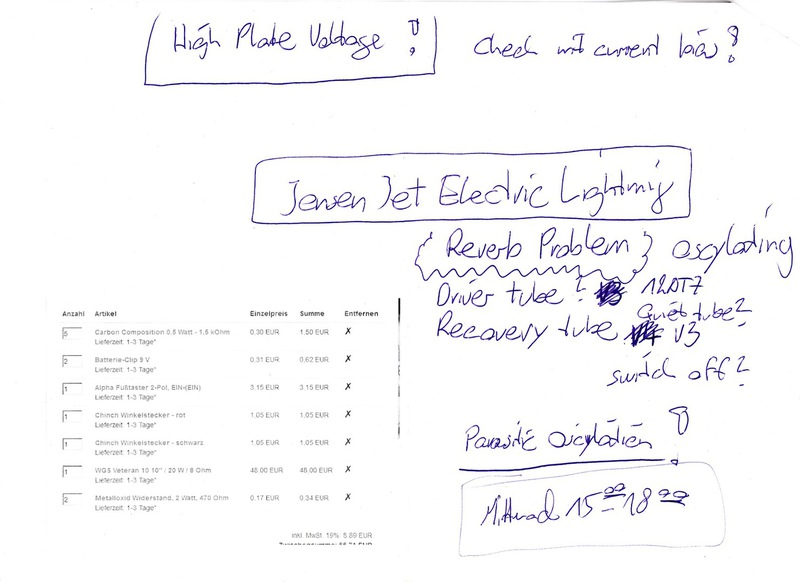 High Plate Voltage !
Check with current bias?
Jensen Jet Electric Lightning
{ Reverb Problem } oscylating
Driver tube? 12AT7
Quiet tube?
Recovery tube V3
switch off?
Parasitic oscylation !
Mittwoch 15 00 - 18 00
Anzahl Artikel Einzelpreis Summe Entfernen
5 Carbon Composition 0.5 Watt - 1,5 kOhm 0.30 EUR 1.50 EUR ✗
Lieferzeit: 1-3 Tage*
2 Batterie-Clip 9 V 0.31 EUR 0.62 EUR ✗
Lieferzeit: 1-3 Tage*
1 Alpha Fußtaster 2-Pol, EIN-(EIN) 3.15 EUR 3.15 EUR ✗
Lieferzeit: 1-3 Tage*
1 Chinch Winkelstecker - rot 1.05 EUR 1.05 EUR ✗
Lieferzeit: 1-3 Tage*
1 Chinch Winkelstecker - schwarz 1.05 EUR 1.05 EUR ✗
Lieferzeit: 1-3 Tage*
1 WGS Veteran 10 10" / 20 W / 8 Ohm 48.00 EUR 48.00 EUR ✗
Lieferzeit: 1-3 Tage*
2 Metalloxid Widerstand, 2 Watt, 470 Ohm 0.17 EUR 0.34 EUR ✗
Lieferzeit: 1-3 Tage*
inkl. MwSt. 19% 5.89 EUR